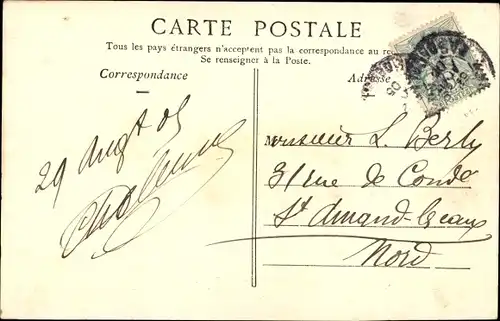 CARTE POSTALE
Tous les pays étrangers n'acceptent pas la correspondance au
Se renseigner à la Poste.
Correspondance
Adresse
29 Augt 05
Monsieur L. Berly
31 rue de Condé
St Amand-les-Eaux
Nord